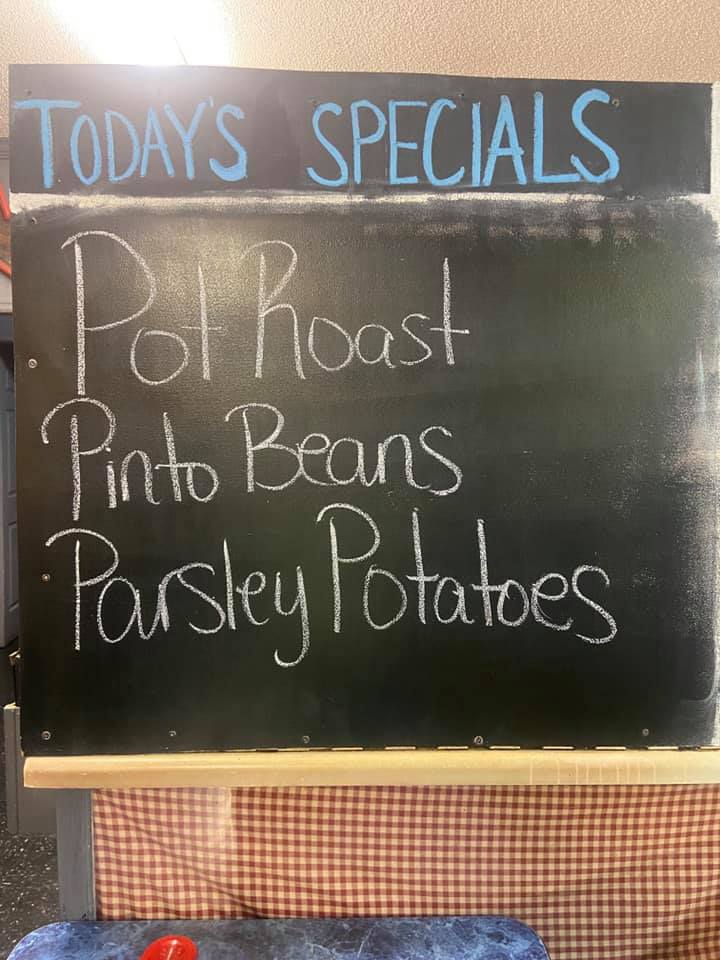 TODAY'S SPECIALS
Pot Roast
Pinto Beans
Parsley Potatoes